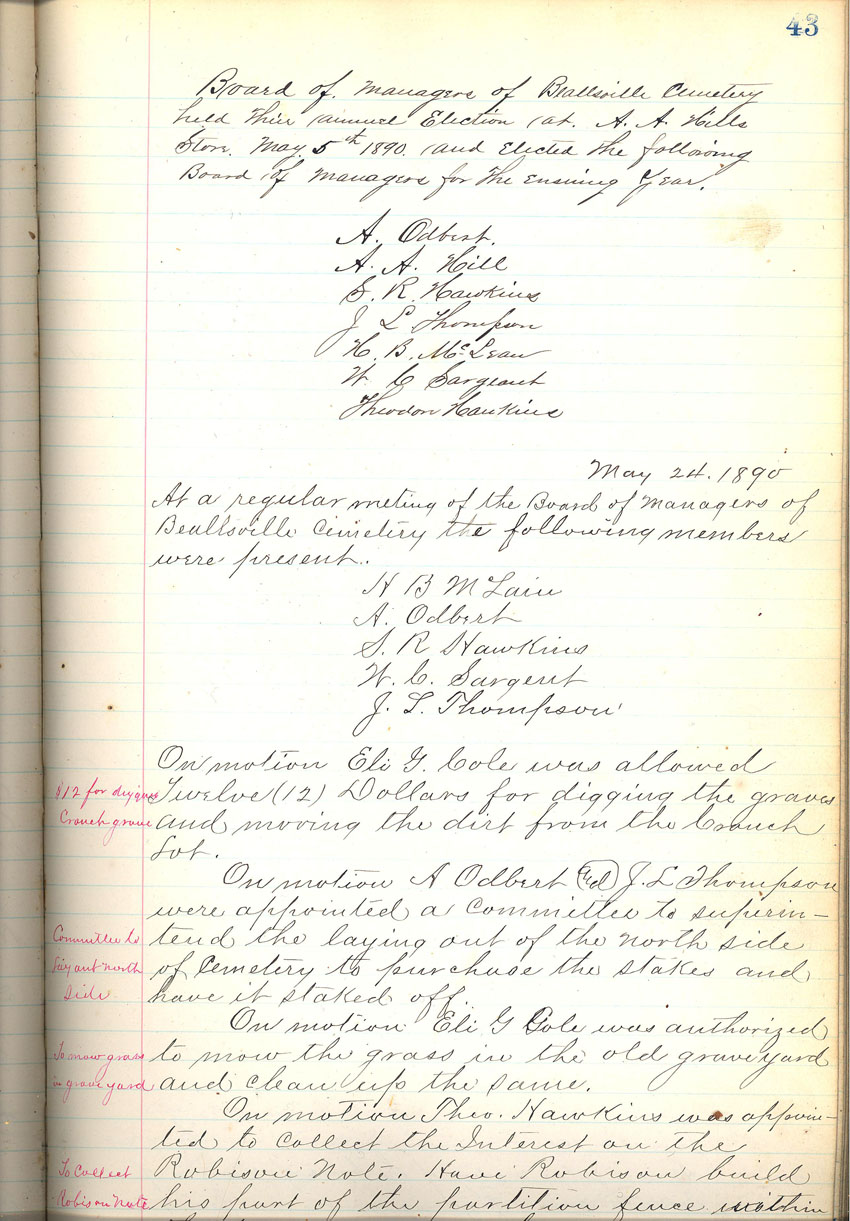 43
Board of Managers of Beallsville Cemetery
held their annual Election at A. A. Hills
Store. May 5th 1890. and Elected the following
Board of Managers for the Ensuing Year.
A. Odbert.
A. A. Hill
S. R. Hawkins
J L Thompson
H. B. McLean
W C Sargeant
Theodore Hawkins
May 24. 1890
At a regular meting of the Board of Managers of
Beallsville Cemetery the following members
were present.
H B M Lain
A. Odbert
S. R Hawkins
W. C. Sargent
J. L. Thompson
On motion Eli G. Cole was allowed
$12 for digging Twelve (12) Dollars for digging the graves
Crouch grave and moving the dirt from the Crouch
Lot.
On motion A Odbert and J. L Thompson
were appointed a Committee to superin-
Committee to tend the laying out of the north side
lay out north of Cemetery to purchase the stakes and
side have it staked off.
On motion Eli G Cole was authorized
To mow grass to mow the grass in the old graveyard
in grave yard and clean up the same.
On motion Theo. Hawkins was appoin-
ted to collect the Interest on the
To Collect Robison Note. Have Robison build
Robison Note his part of the partition fence within